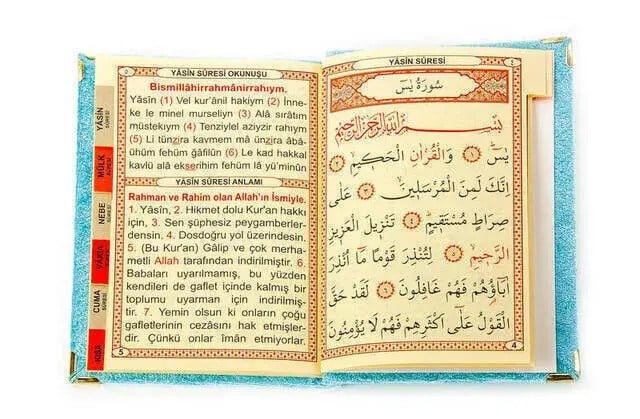 ٥ YÂSİN SÛRESİ OKUNUŞU
Bismillâhirrahmânirrahıym.
Yâsîn (1) Vel kur'ânil hakiym (2) İnne-
ke le minel murseliyn (3) Alâ sıratım
müstekıym (4) Tenziylel aziyzir rahıym
(5) Li tünzira kavmem mâ ünzira âbâ-
ühüm fehüm ğâfilûn (6) Le kad hakkal
kavlü alâ ekserihim fehüm lâ yü'minûn
YÂSİN SÛRESİ ANLAMI
Rahman ve Rahim olan Allah'ın İsmiyle.
1. Yâsîn, 2. Hikmet dolu Kur'an hakkı
için, 3. Sen şüphesiz peygamberler-
densin. 4. Dosdoğru yol üzerindesin.
5. (Bu Kur'an) Gâlip ve çok merha-
metli Allah tarafından indirilmiştir. 6.
Babaları uyarılmamış, bu yüzden
kendileri de gaflet içinde kalmış bir
toplumu uyarman için indirilmiş-
tir. 7. Yemin olsun ki onların çoğu
gafletlerinin cezâsını hak etmişler-
dir. Çünkü onlar îman etmiyorlar.
5
YÂSİN
SÛRESİ
MÜLK
SÛRESİ
NEBE
SÛRESİ
VÂKIA
SÛRESİ
CUMA
SÛRESİ
KISA
YÂSİN SÛRESİ ٤
سُورَةُ يٰسٓ
بِسْمِ اللّٰهِ الرَّحْمٰنِ الرَّحِيمِ
يٰسٓ ﴿١﴾ وَالْقُرْاٰنِ الْحَكِيمِ ﴿٢﴾
اِنَّكَ لَمِنَ الْمُرْسَلِينَ ﴿٣﴾ عَلٰى
صِرَاطٍ مُسْتَقِيمٍ ﴿٤﴾ تَنْزِيلَ الْعَزِيزِ
الرَّحِيمِ ﴿٥﴾ لِتُنْذِرَ قَوْمًا مَٓا اُنْذِرَ
اٰبَٓاؤُهُمْ فَهُمْ غَافِلُونَ ﴿٦﴾ لَقَدْ حَقَّ
الْقَوْلُ عَلٰٓى اَكْثَرِهِمْ فَهُمْ لَا يُؤْمِنُونَ
4